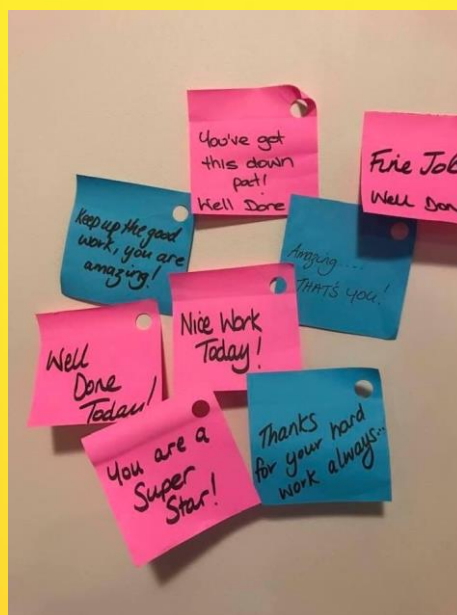 You've got
this down
pat!
Well Done
Fine Job
Well Don
Keep up the good
work, you are
amazing!
Amazing....
THAT'S YOU!
Nice Work
Today!
Well
Done
Today!
You are a
Super
Star!
Thanks
for your hard
work always...